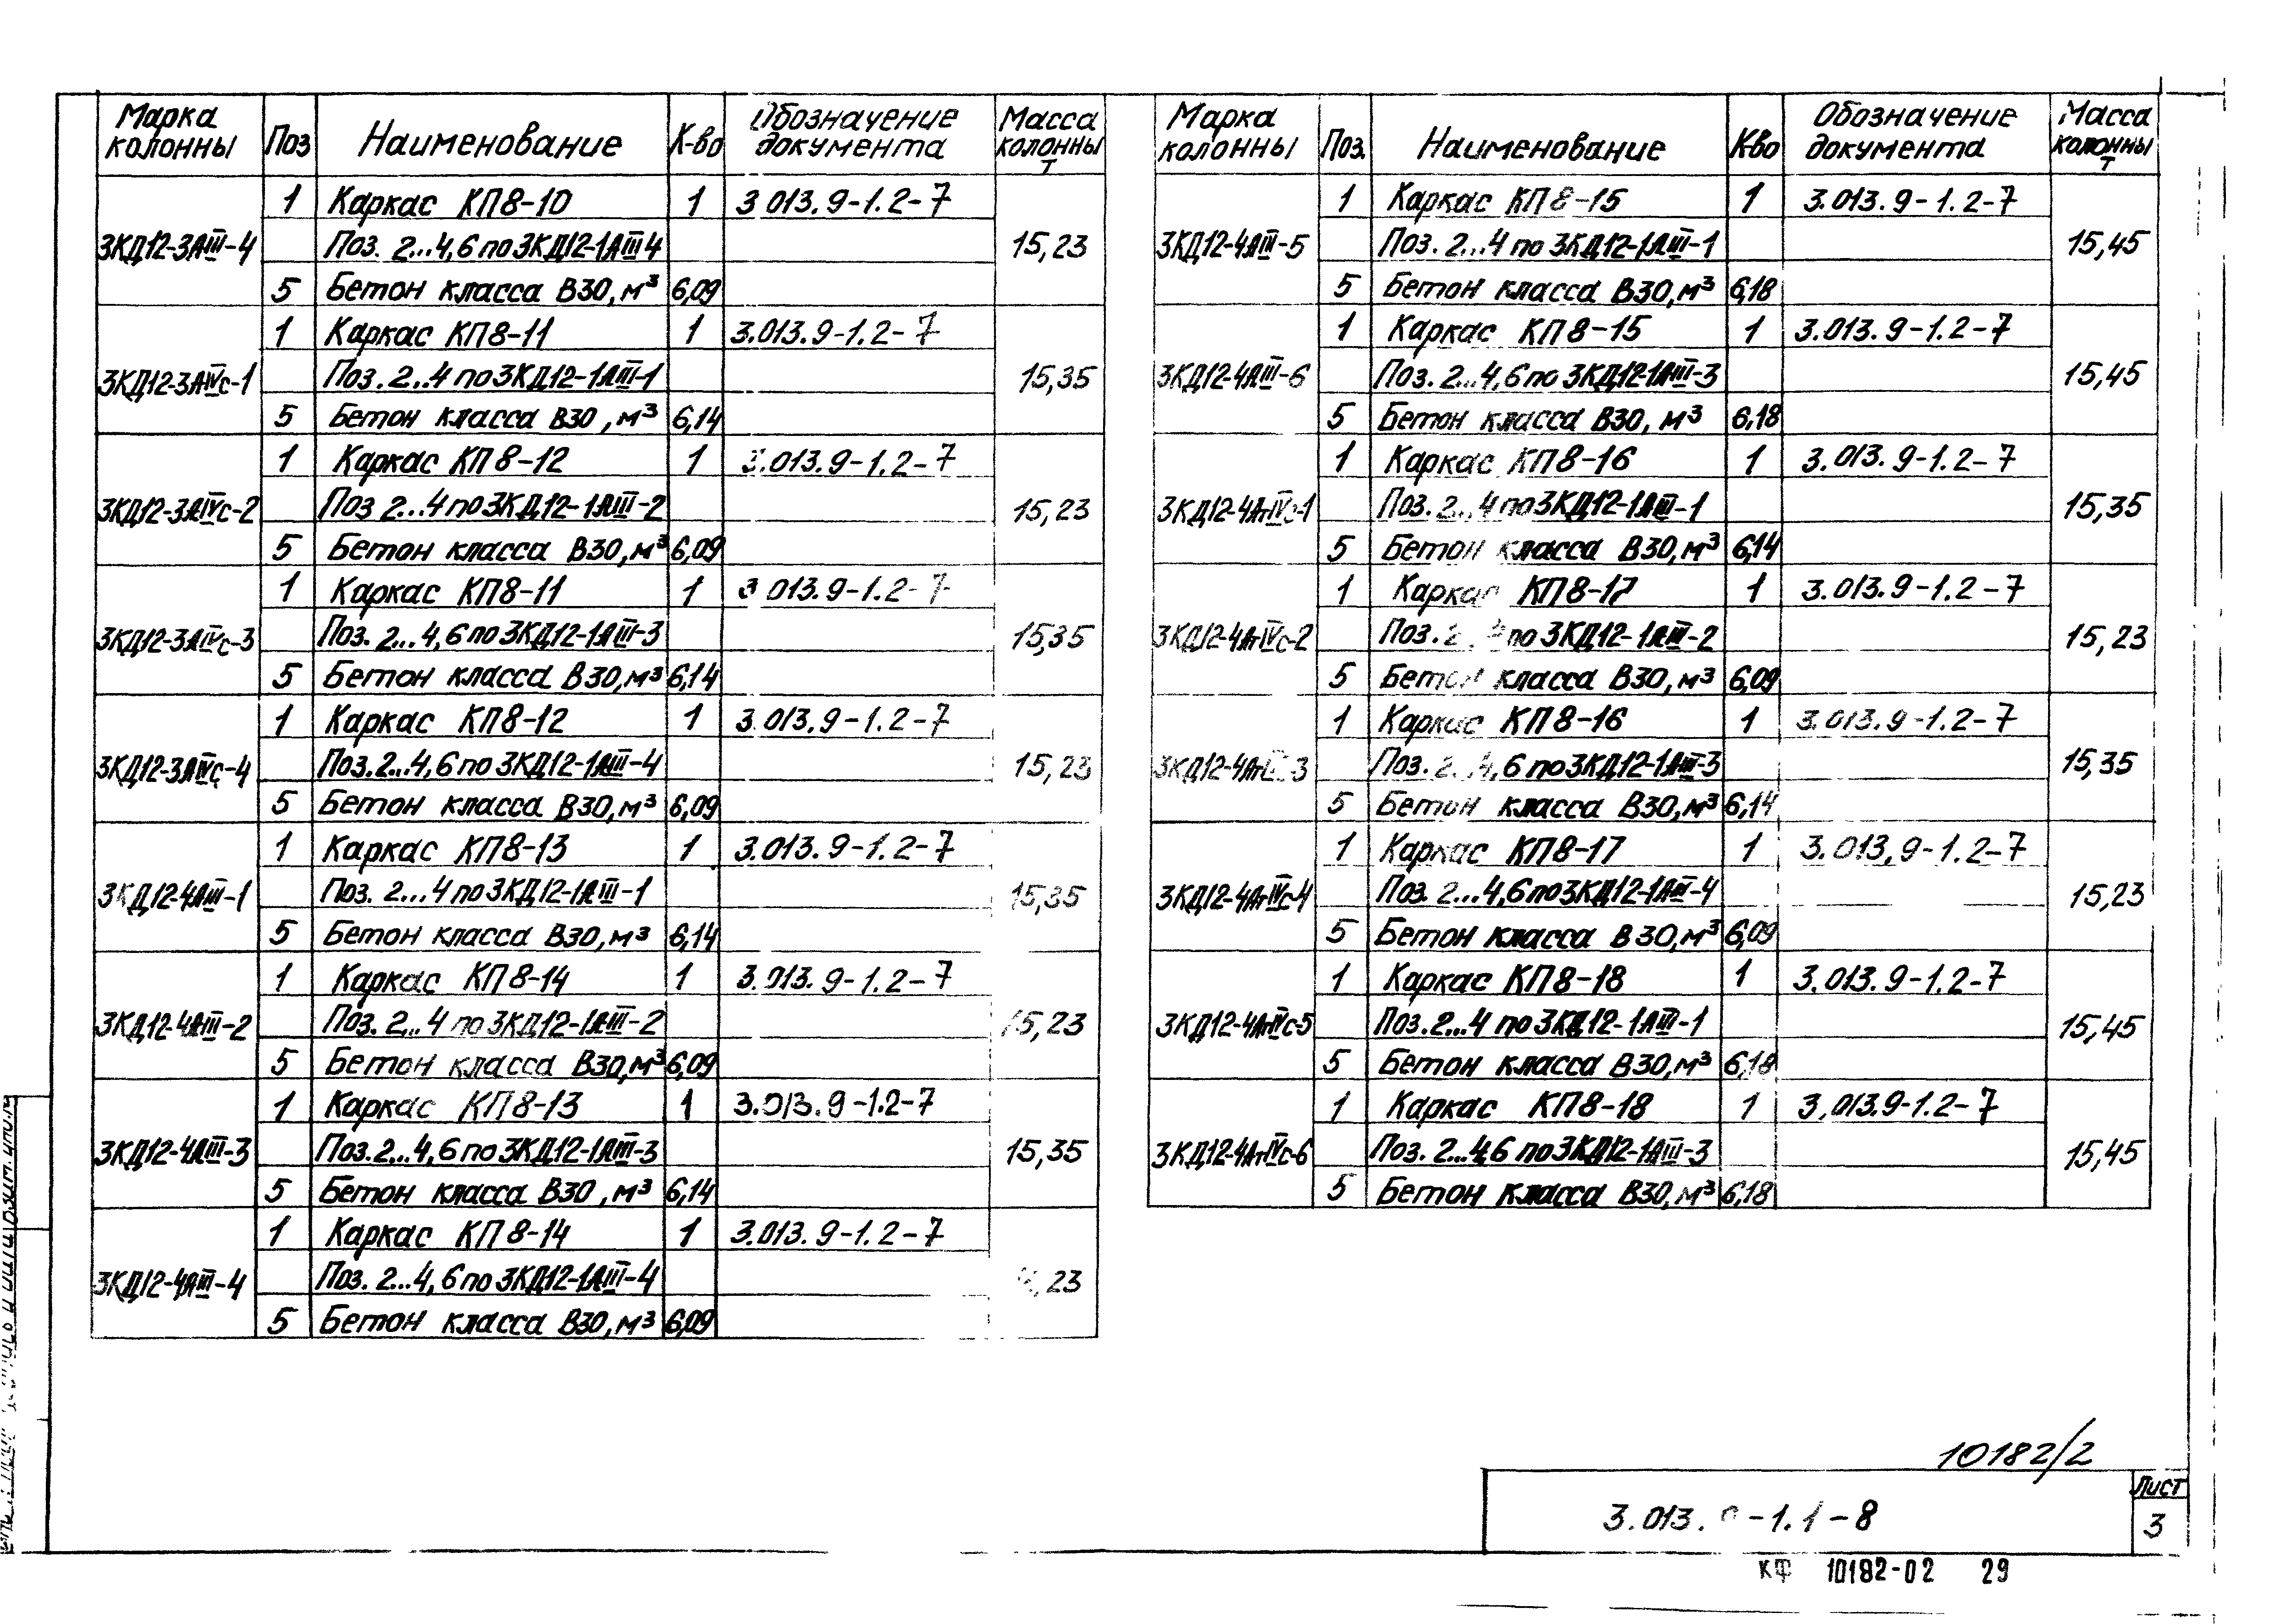 Марка колонны | Поз | Наименование | К-во | Обозначение документа | Масса колонны т
3КД12-3АIII-4 | 1 | Каркас КП8-10 | 1 | 3.013.9-1.2-7 | 15,23
Поз. 2...4,6 по 3КД12-1АIII4
5 | Бетон класса В30, м³ | 6,09
3КД12-3АIVс-1 | 1 | Каркас КП8-11 | 1 | 3.013.9-1.2-7 | 15,35
Поз. 2..4 по 3КД12-1АIII-1
5 | Бетон класса В30, м³ | 6,14
3КД12-3АIVс-2 | 1 | Каркас КП8-12 | 1 | 3.013.9-1.2-7 | 15,23
Поз 2...4 по 3КД12-1АIII-2
5 | Бетон класса В30, м³ | 6,09
3КД12-3АIVс-3 | 1 | Каркас КП8-11 | 1 | 3.013.9-1.2-7 | 15,35
Поз. 2...4,6 по 3КД12-1АIII-3
5 | Бетон класса В30, м³ | 6,14
3КД12-3АIVс-4 | 1 | Каркас КП8-12 | 1 | 3.013.9-1.2-7 | 15,23
Поз. 2...4,6 по 3КД12-1АIII-4
5 | Бетон класса В30, м³ | 6,09
3КД12-4АIII-1 | 1 | Каркас КП8-13 | 1 | 3.013.9-1.2-7 | 15,35
Поз. 2...4 по 3КД12-1АIII-1
5 | Бетон класса В30, м³ | 6,14
3КД12-4АIII-2 | 1 | Каркас КП8-14 | 1 | 3.013.9-1.2-7 | 15,23
Поз. 2...4 по 3КД12-1АIII-2
5 | Бетон класса В30, м³ | 6,09
3КД12-4АIII-3 | 1 | Каркас КП8-13 | 1 | 3.013.9-1.2-7 | 15,35
Поз. 2...4,6 по 3КД12-1АIII-3
5 | Бетон класса В30, м³ | 6,14
3КД12-4АIII-4 | 1 | Каркас КП8-14 | 1 | 3.013.9-1.2-7
Поз. 2...4,6 по 3КД12-1АIII-4
5 | Бетон класса В30, м³ | 6,09
Марка колонны | Поз. | Наименование | Кво | Обозначение документа | Масса колонны т
3КД12-4АIII-5 | 1 | Каркас КП8-15 | 1 | 3.013.9-1.2-7 | 15,45
Поз. 2...4 по 3КД12-1АIII-1
5 | Бетон класса В30, м³ | 6,18
3КД12-4АIII-6 | 1 | Каркас КП8-15 | 1 | 3.013.9-1.2-7 | 15,45
Поз. 2...4,6 по 3КД12-1АIII-3
5 | Бетон класса В30, м³ | 6,18
3КД12-4АтIVс-1 | 1 | Каркас КП8-16 | 1 | 3.013.9-1.2-7 | 15,35
Поз. 2...4 по 3КД12-1АIII-1
5 | Бетон класса В30, м³ | 6,14
3КД12-4АтIVс-2 | 1 | Каркас КП8-17 | 1 | 3.013.9-1.2-7 | 15,23
Поз. 2...4 по 3КД12-1АIII-2
5 | Бетон класса В30, м³ | 6,09
3КД12-4АтIVс-3 | 1 | Каркас КП8-16 | 1 | 3.013.9-1.2-7 | 15,35
Поз. 2...4,6 по 3КД12-1АIII-3
5 | Бетон класса В30, м³ | 6,14
3КД12-4АтIVс-4 | 1 | Каркас КП8-17 | 1 | 3.013,9-1.2-7 | 15,23
Поз. 2...4,6 по 3КД12-1АIII-4
5 | Бетон класса В30, м³ | 6,09
3КД12-4АтIVс-5 | 1 | Каркас КП8-18 | 1 | 3.013.9-1.2-7 | 15,45
Поз. 2...4 по 3КД12-1АIII-1
5 | Бетон класса В30, м³ | 6,18
3КД12-4АтIVс-6 | 1 | Каркас КП8-18 | 1 | 3,013.9-1.2-7 | 15,45
Поз. 2...4,6 по 3КД12-1АIII-3
5 | Бетон класса В30, м³ | 6,18
10182/2
3.013.9-1.1-8
Лист
3
КФ 10182-02 29